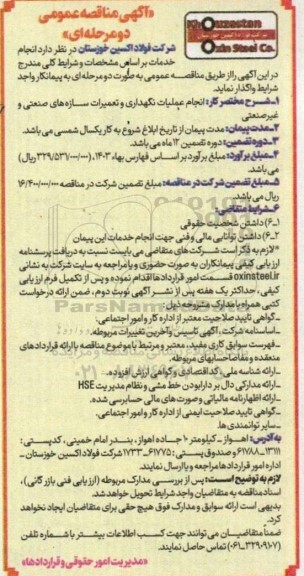 «آگهی مناقصه عمومی
دو مرحله ای»
Khouzestan
Oxin Steel Co.
شرکت فولاد اکسین خوزستان در نظر دارد انجام
خدمات بر اساس مشخصات و شرایط کلی مندرج
در این آگهی را از طریق مناقصه عمومی به صورت دو مرحله ای به پیمانکار واجد
شرایط واگذار نماید.
۱_شرح مختصر کار: انجام عملیات نگهداری و تعمیرات سازه های صنعتی و
غیر صنعتی
۲_مدت پیمان: مدت پیمان از تاریخ ابلاغ شروع به کار یکسال شمسی می باشد.
۳_دوره تضمین: دوره تضمین ۱۲ ماه می باشد.
۴_مبلغ برآورد: مبلغ برآورد بر اساس فهارس بهاء ۱۴۰۳، (۳۲۹/۵۳۱/۰۰۰/۰۰۰ ریال)
می باشد.
۵_مبلغ تضمین شرکت در مناقصه: مبلغ تضمین شرکت در مناقصه ۱۶/۴۰۰/۰۰۰/۰۰۰
ریال می باشد.
۶_شرایط متقاضی:
۶_۱) داشتن شخصیت حقوقی
۶_۲) داشتن توانایی مالی و فنی جهت انجام خدمات این پیمان
*لازم به ذکر است شرکت های متقاضی می بایست نسبت به دریافت پرسشنامه
ارزیابی کیفی پیمانکاران به صورت حضوری و یا مراجعه به سایت شرکت به نشانی
oxinsteel.ir قسمت امور قراردادها اقدام نموده و پس از تکمیل فرم ارزیابی
کیفی، حداکثر یک هفته پس از نشر آگهی نوبت دوم، ضمن ارائه درخواست
کتبی همراه با مدارک مشروحه ذیل:
_گواهی تایید صلاحیت معتبر از اداره کار و امور اجتماعی.
_اساسنامه شرکت، آگهی تاسیس و آخرین تغییرات مربوطه.
_فهرست سوابق کاری مفید، معتبر و مرتبط با موضوع مناقصه با ارائه قراردادهای
منعقده و مفاصاحسابهای مربوطه.
_ارائه شناسه ملی، کد اقتصادی و گواهی ارزش افزوده.
_ارائه مدارکی دال بر دارا بودن خط مشی و نظام مدیریت HSE
_ارائه اظهارنامه مالیاتی و صورت های مالی حسابرسی شده.
_گواهی تایید صلاحیت ایمنی از اداره کار و امور اجتماعی.
_سایر توانمندی ها.
به آدرس: اهواز _ کیلومتر ۱۰ جاده اهواز، بندر امام خمینی، کدپستی:
۶۱۷۸۸_۱۳۱۱۱ و صندوق پستی: ۶۱۷۷۵_۱۷۳۳ شرکت فولاد اکسین خوزستان _
اداره امور قراردادها مراجعه و یا ارسال نمایند.
لازم به توضیح است: پس از بررسی مدارک مربوطه (ارزیابی فنی بازرگانی)،
اسناد مناقصه به متقاضیان واجد شرایط تحویل خواهد شد.
بدیهی است ارائه سوابق و مدارک فوق هیچ حقی برای متقاضیان ایجاد نخواهد
کرد.
ضمناً متقاضیان می توانند جهت کسب اطلاعات بیشتر با شماره تلفن
(۳۲۹۰۹۱۰۷_۰۶۱) تماس حاصل نمایند.
«مدیریت امور حقوقی و قراردادها»